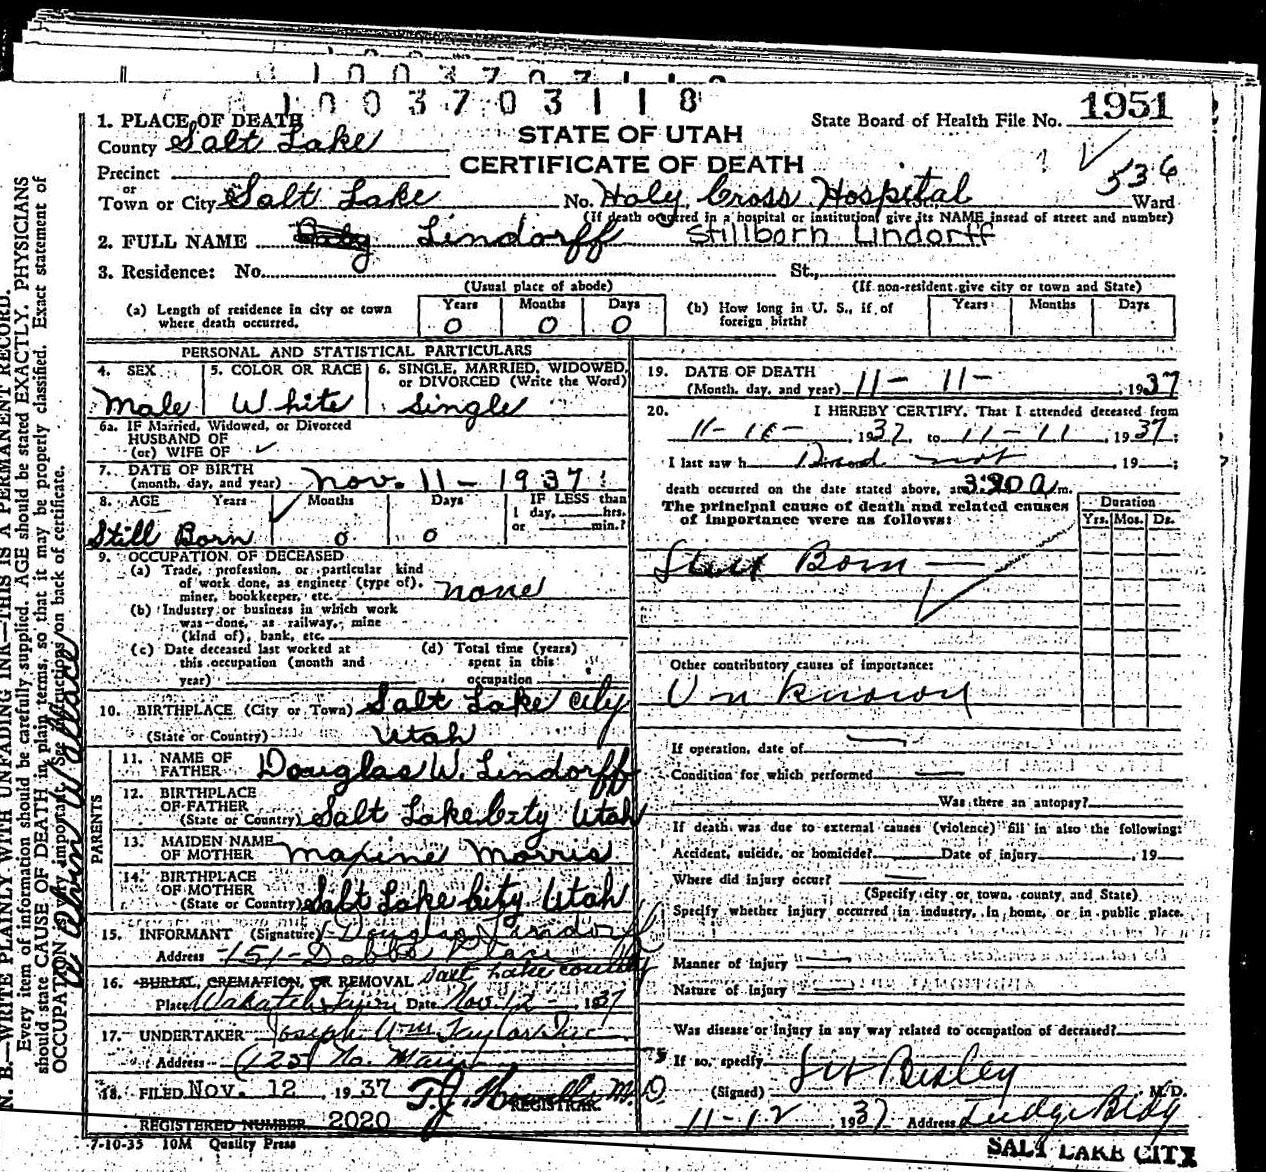 1003703118
1. PLACE OF DEATH
County Salt Lake
STATE OF UTAH
CERTIFICATE OF DEATH
State Board of Health File No. 1951
536
Precinct
or
Town or City Salt Lake No. Holy Cross Hospital Ward
(If death occurred in a hospital or institution, give its NAME insead of street and number)
2. FULL NAME Baby Lindorff Stillborn Lindorff
3. Residence: No. St.,
(Usual place of abode) (If non-resident give city or town and State)
(a) Length of residence in city or town where death occurred. Years 0 Months 0 Days 0
(b) How long in U. S., if of foreign birth? Years Months Days
PERSONAL AND STATISTICAL PARTICULARS
4. SEX Male
5. COLOR OR RACE White
6. SINGLE, MARRIED, WIDOWED, or DIVORCED (Write the Word) Single
6a. IF Married, Widowed, or Divorced
HUSBAND OF
(or) WIFE OF
7. DATE OF BIRTH
(month, day, and year) Nov. 11 - 1937
8. AGE Years Still Born Months 0 Days 0
IF LESS than
1 day, hrs.
or min.?
9. OCCUPATION OF DECEASED
(a) Trade, profession, or particular kind
of work done, as engineer (type of),
miner, bookkeeper, etc. none
(b) Industry or business in which work
was done, as railway, mine
(kind of), bank, etc.
(c) Date deceased last worked at
this occupation (month and
year)
(d) Total time (years)
spent in this
occupation
10. BIRTHPLACE (City or Town) Salt Lake City
(State or Country) Utah
PARENTS
11. NAME OF
FATHER Douglas W. Lindorff
12. BIRTHPLACE
OF FATHER
(State or Country) Salt Lake City Utah
13. MAIDEN NAME
OF MOTHER Maxine Morris
14. BIRTHPLACE
OF MOTHER
(State or Country) Salt Lake City Utah
15. INFORMANT (Signature) Douglas Lindorff
Address 151 Dobbs Place
16. BURIAL, CREMATION, OR REMOVAL Salt Lake County
Place Wasatch Lawn Date Nov. 12 - 1937
17. UNDERTAKER Joseph Wm Taylor Inc
Address 125 No. Main
18. FILED NOV. 12, 1937 T.J. Howells M.D.
REGISTRAR.
REGISTERED NUMBER 2020
7-10-35 10M Quality Press
19. DATE OF DEATH
(Month, day, and year) 11 - 11 - 1937
20. I HEREBY CERTIFY, That I attended deceased from
, 1937, to 11-11, 1937;
I last saw h , 19 ;
death occurred on the date stated above, at 3:20 A m.
The principal cause of death and related causes
of importance were as follows:
Duration
Yrs. Mos. Ds.
Still Born
Other contributory causes of importance:
Unknown
If operation, date of
Condition for which performed
Was there an autopsy?
If death was due to external causes (violence) fill in also the following:
Accident, suicide, or homicide? Date of injury , 19
Where did injury occur?
(Specify city or town, county, and State)
Specify whether injury occurred in industry, in home, or in public place.
Manner of injury
Nature of injury
Was disease or injury in any way related to occupation of deceased?
If so, specify
(Signed) M.D.
11-12 1937 Address Judge Bldg
SALT LAKE CITY
N. B.—WRITE PLAINLY WITH UNFADING INK—THIS IS A PERMANENT RECORD.
Every item of information should be carefully supplied. AGE should be stated EXACTLY. PHYSICIANS
should state CAUSE OF DEATH in plain terms, so that it may be properly classified. Exact statement of
OCCUPATION is very important. See instructions on back of certificate.
Alvin Wallace